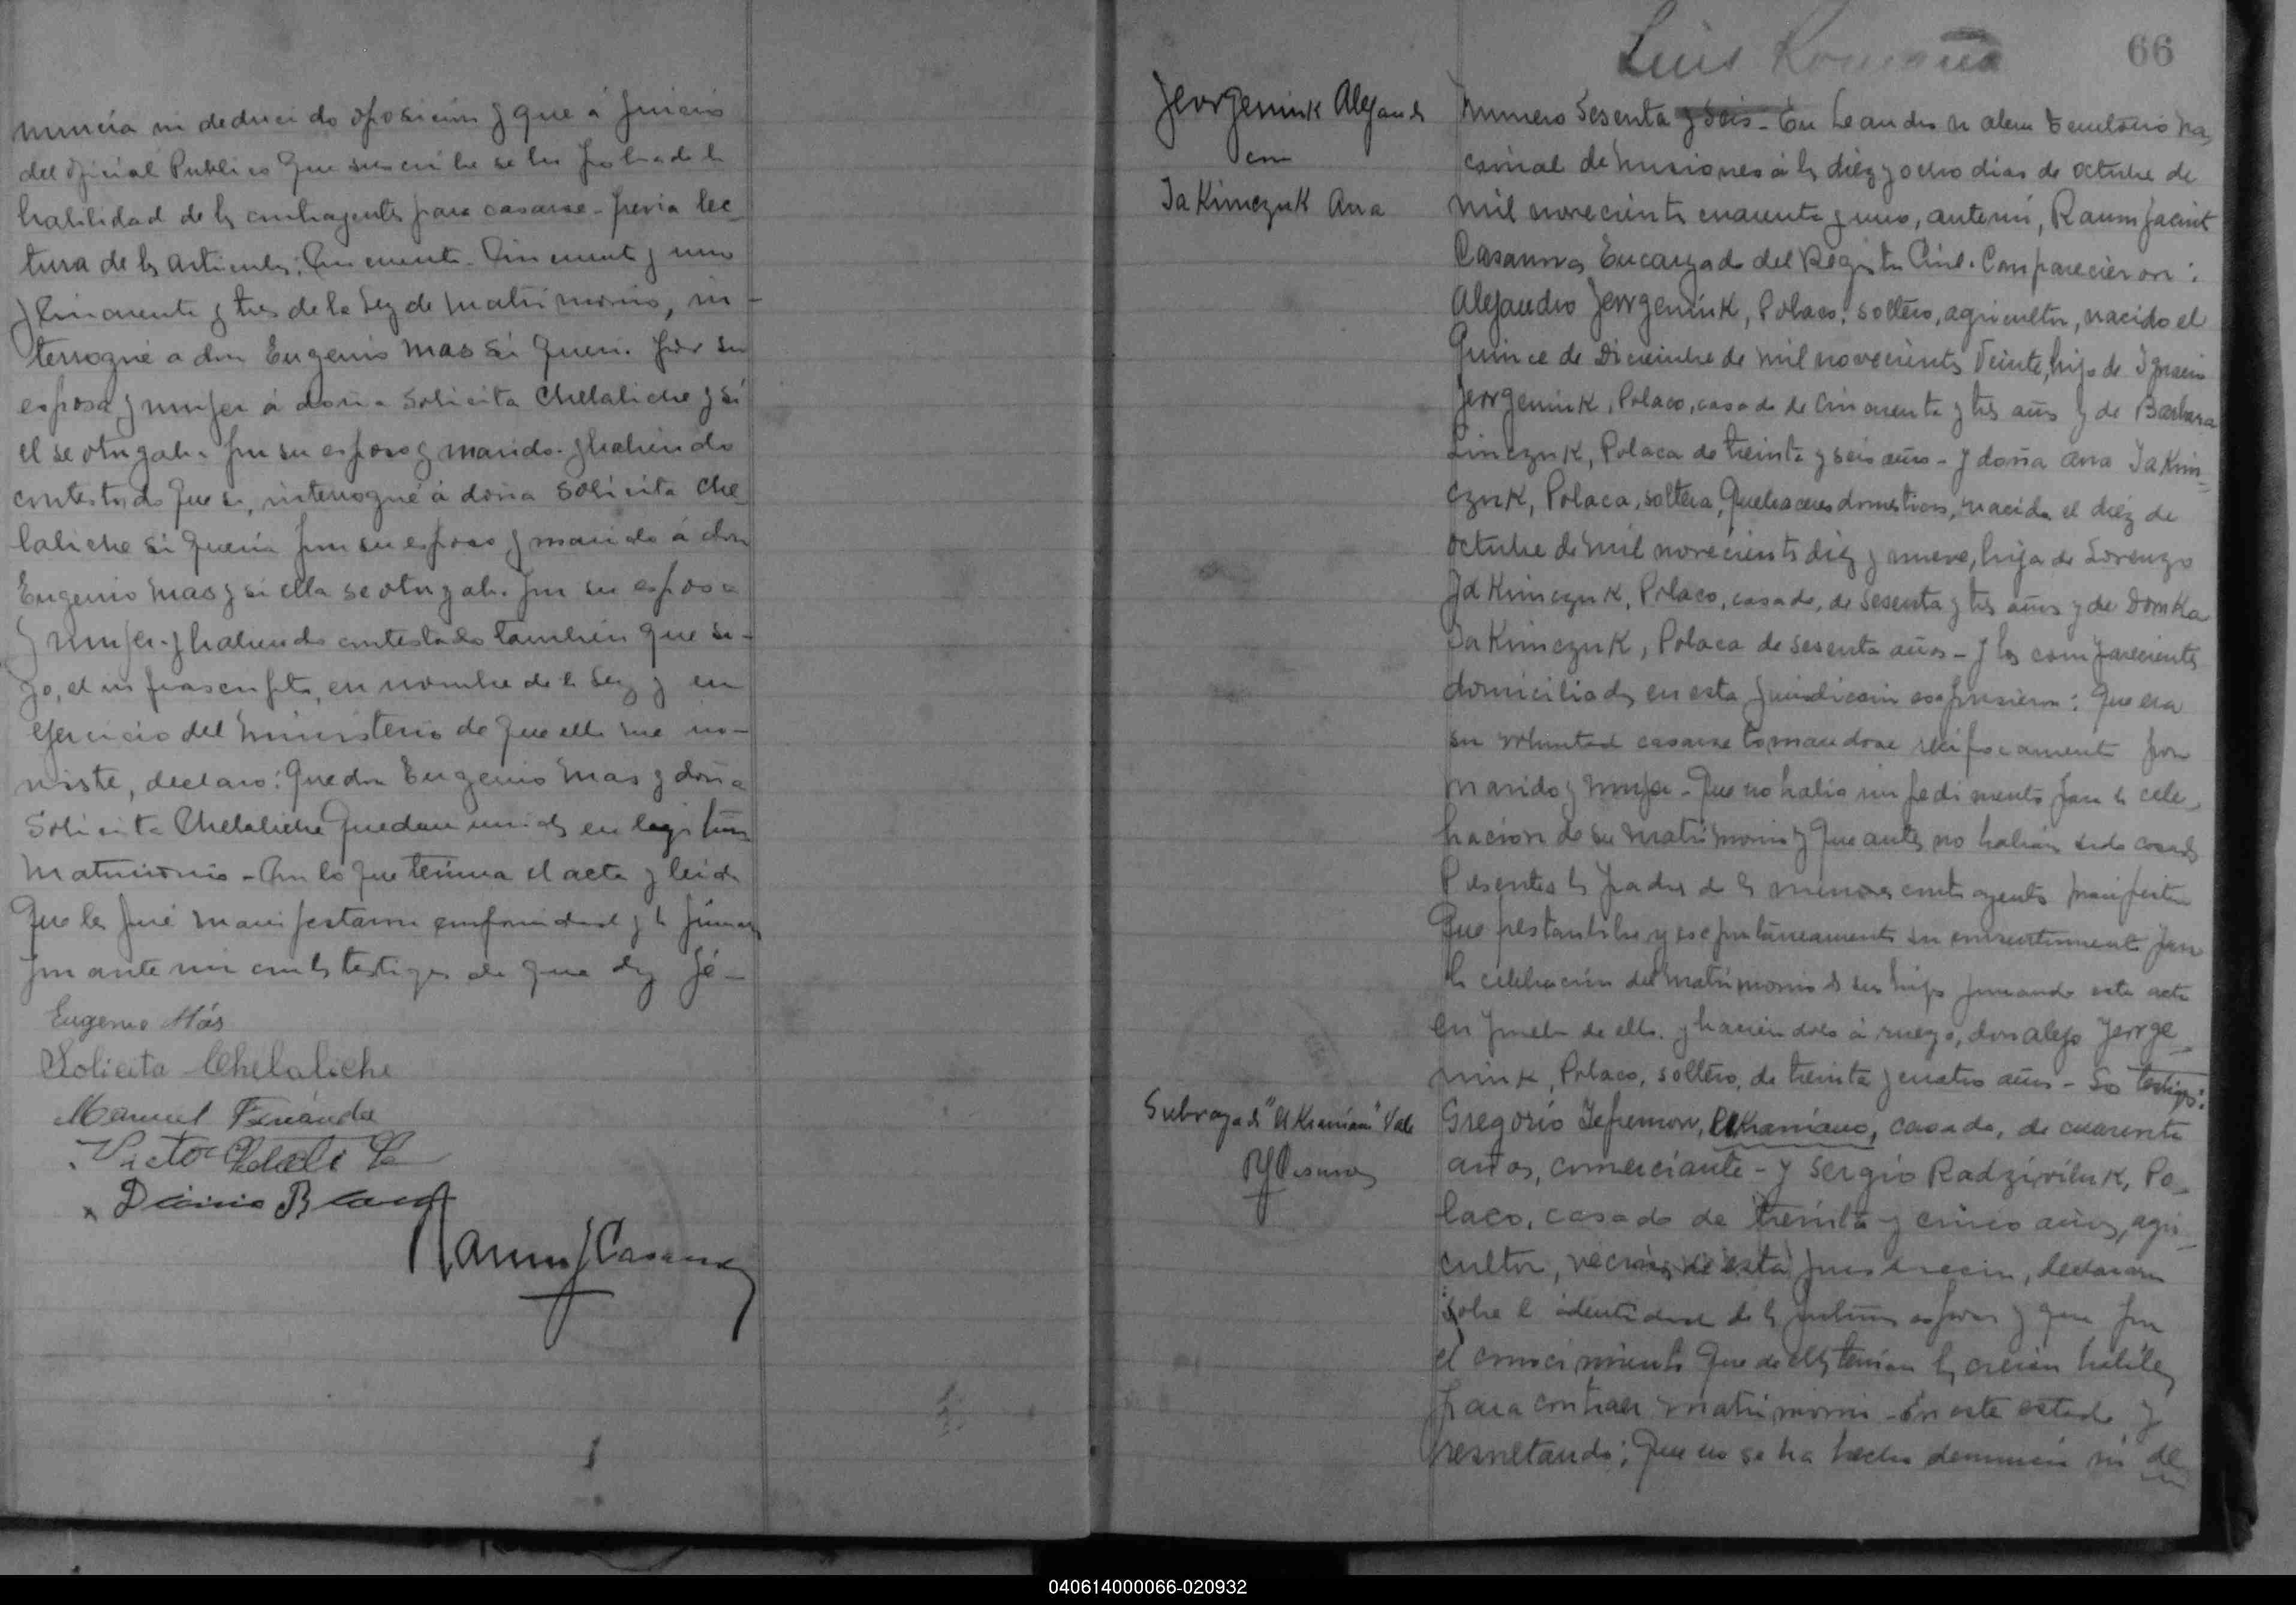 nuncia ni deducido oposicion y que á juicio
del oficial Publico que suscribe se ha probado la
habilidad de los contrayentes para casarse - previa lec-
tura de los articulos; Cincuenta - Cincuenta y uno
y Cincuenta y tres de la Ley de matrimonio, in-
terrogué a don Eugenio Mas si queria por su
esposa y mujer á doña Solicita Chelaliche y si
el se otorgaba por su esposo y marido - y habiendo
contestado que si, interrogué á doña Solicita Che-
laliche si queria por su esposo y marido á don
Eugenio Mas y si ella se otorgaba por su esposa
y mujer - y habiendo contestado tambien que si -
yo, el infrascripto, en nombre de la Ley y en
ejercicio del ministerio de que ella me in-
viste, declaro: Que don Eugenio Mas y doña
Solicita Chelaliche quedan unidos en legitimo
matrimonio - Con lo que termina el acta y leida
que les fué manifestaron conformidad y la firman
por ante mi con los testigos de que doy fé -
Eugenio Más
Solicita Chelaliche
Manuel Fernández
Victor
Ramon J Casanova
Luis Romaña
66
Jevrgeniuk Alejandro
con
Jakimczuk Ana
Numero Sesenta y Seis - En Leandro N Alem Territorio Na-
cional de Misiones á los diez y ocho dias de octubre de
mil novecientos cuarenta y uno, ante mi, Ramon Jacinto
Casanova Encargado del Registro Civil. Comparecieron:
Alejandro Jevrgeniuk, Polaco, soltero, agricultor, nacido el
Quince de Diciembre de mil novecientos Veinte, hijo de Ignacio
Jevrgeniuk, Polaco, casado de Cincuenta y tres años y de Barbara
Linczuk, Polaca de treinta y seis años - y doña Ana Jakim-
czuk, Polaca, soltera, Quehaceres domesticos, nacida el diez de
octubre de mil novecientos diez y nueve, hija de Lorenzo
Jakimczuk, Polaco, casado, de Sesenta y tres años y de Domka
Jakimczuk, Polaca de sesenta años - y los comparecientes
domiciliados en esta jurisdiccion expusieron: Que era
su voluntad casarse tomandose reciprocamente por
marido y mujer - Que no habia impedimento para la cele-
bracion de su matrimonio y que antes no habian sido casados
Presentes los padres de los menores contrayentes manifiestan
Que prestan libre y espontáneamente su consentimiento para
la celebracion del matrimonio de sus hijos firmando esta acta
en prueba de ello - y haciendolo á ruego, don Alejo Jevrge-
niuk, Polaco, soltero, de treinta y cuatro años - Los testigos:
Subrayado "Ukraniano" Vale
Gregorio Jefremow, Ukraniano, casado, de cuarenta
RJCasanova
años, comerciante - y Sergio Radziviluk, Po-
laco, casado de treinta y cinco años, agri-
cultor, vecinos de esta jurisdiccion, declararon
sobre la identidad de los futuros esposos y que por
el conocimiento que de ellos tenian los creian hábiles
para contraer matrimonio - En este estado y
resultando; Que no se ha hecho denuncia ni de-
040614000066-020932